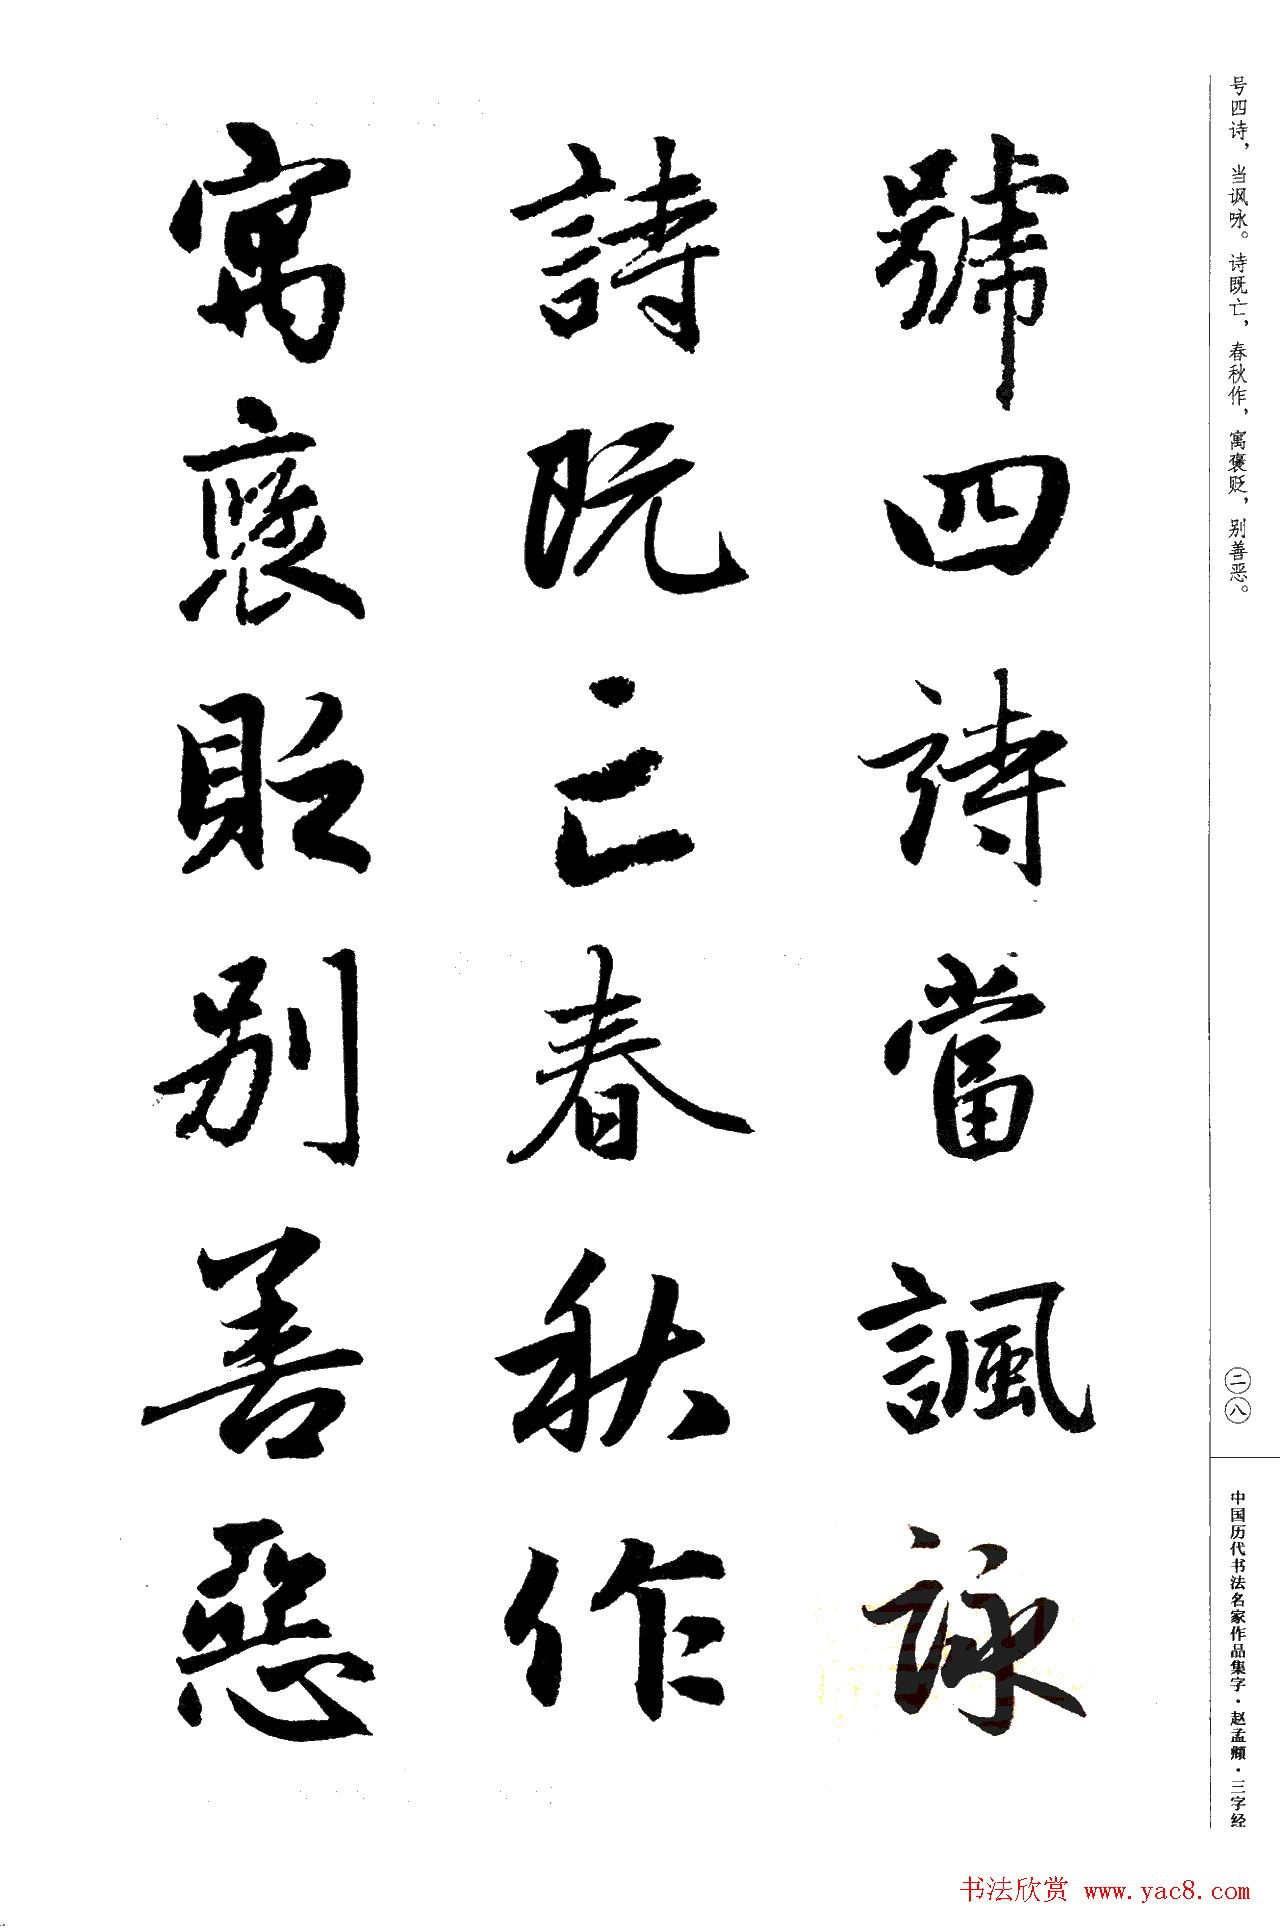 号四诗，当讽咏。诗既亡，春秋作，寓褒贬，别善恶。
號四詩當諷詠
詩既亡春秋作
寓褒貶别善惡
二八
中国历代书法名家作品集字·赵孟頫·三字经
书法欣赏 www.yac8.com